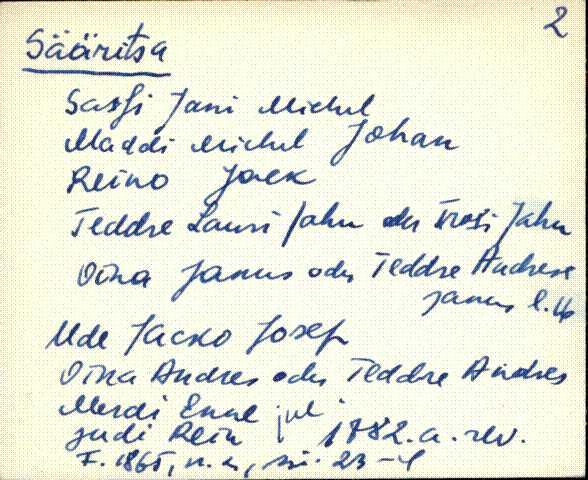 2
Sääritsa
Sassi Jani Michel
Maddi Michel Johan
Reino Jaek
Teddre Lauri Jahn oder Jahn
Oina Janus oder Teddre Andrese
Janus l. 46
Ude Jacko Josep
Oina Andres oder Teddre Andres
Merdi Enne jul
Judi Rein 1782. a. rev.
F. 1865, n. 2, 23-4